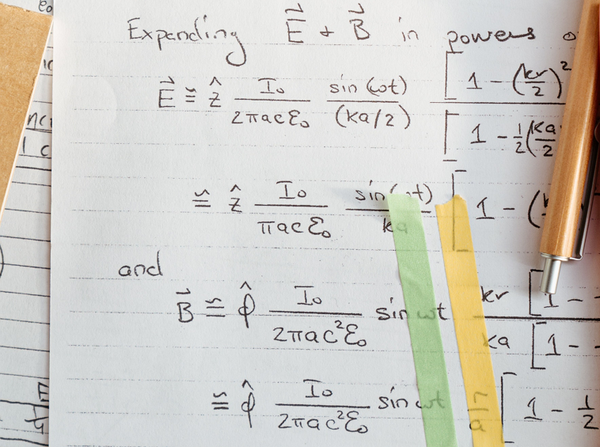 Expanding E⃗ + B⃗ in powers
E⃗ ≅ ẑ I₀/(2πacε₀) sin(ωt)/(ka/2) [1 - (kr/2)²]/[1 - 1/2(ka/2)
≅ ẑ I₀/(πacε₀) sin(ωt)/ka [1 - (
and
B⃗ ≅ φ̂ I₀/(2πac²ε₀) sin ωt kr [1 - / ka [1 -
≅ φ̂ I₀/(2πac²ε₀) sin ωt r/a [1 - 1/2